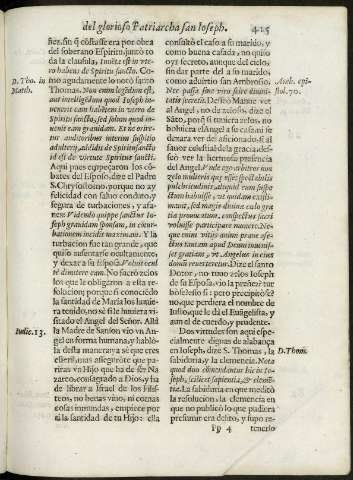 del glorioso Patriarcha san Ioseph. 425
ñez, sin q̃ cõstasse era por obra
del soberano Espiritu, juntò to
da la clausula, inuẽta est in vte-
ro habens de Spiritu sancto. Co-
mo agudamente lo notò santo
D. Tho. in
Math.
Thomas. Non enim legẽdum est,
aut intelligẽdum quod Ioseph in-
uenerit eam habẽtem in vtero de
Spiritu sancto, sed solum quod in-
uenit eam grauidam. Et ne orire-
tur auditoribus interim suspitio
adulterij, addidit de Spiritu sancto
id est de virtute Spiritus sancti.
Aqui pues empeçaron los cõ-
bates del Esposo, dize el Padre
S. Chrysostomo, porque no ay
felicidad con saluo conduto, y
segura de turbaciones, y afa-
nes: Videndo quippe sanctus Io-
seph grauidam sponsam, in
batio nem incidit Y la
turbacion fue tan grande, que
quiso ausentarse ocultamente,
y dexar a su Esposa. Voluit occul
tè dimittere eam. No sacro zelos
los que le obligaron a esta re-
solucion; porque si conociẽdo
la santidad de Maria los huuie-
ra tenido, no sè si le huuiera vi-
sitado el Angel del Señor. Allà
Iudic. 13.
la Madre de Sanson vio vn An-
gel en forma humana, y hablò-
la desta manera: ya sè que eres
esteril, mas assegurote que pa-
riràs vn Hijo que ha de ser Na
zareo, consagrado a Dios, y ha
de librar a Israel de los Filis-
teos, no beuas vino, ni comas
cosas inmundas, empiece por
ti la santidad de tu Hijo: ella
consultò el caso a su marido, y
como buena casada, no quiso
oyr secreto, aunque del cielo,
sin dar parte del a su marido,
como aduirtio san Ambrosio.
Amb. epi-
stol. 70.
Nec passa sine viro scire diuini-
tatis secreta. Desseò Manue ver
el Angel, no da zelos, dize el
Sãto, porq̃ si tuuiera zelos, no
boluiera el Angel a su casa, ni se
dexara ver del aficionado, si al
fauor celestial de la gracia, des-
seò ver la hermosa presencia
del Angel. Vnde ego arbitror non
zelo mulieris quæ esset specie
pulchritudinis, aliquid eum suspe-
ctum habuisse, vt quidam existi-
mant, sed magis diuinæ zelo gra-
tia prouocatum, conspectus sacri
voluisse participare munere. Ne-
que enim vitijs animi prauæ affe-
ctus tantam apud Deum inuenis-
set gratiam, vt Angelus in eius
domũ reuerteretur. Dize el santo
Dotor, no tuuo zelos Ioseph
de su Esposa, vio la preñez? tur
bòse? esso si: pero precipitòse?
no, que perdiera el nombre de
Iusto, que le dà el Euãgelista, y
aun el de cuerdo, y prudente.
Dos virtudes son aqui espe-
cialmente dignas de alabança
D. Thom.
en Ioseph, dize S. Thomas, la
sabiduria, y la clemencia. Nota
quod duo commendantur hic in Io-
seph, scilicet sapientia, & clemẽ-
tia. La sabiduria en que medità
la resolucion, la clemencia en
que no publicò lo que pudiera
presumir era delito, y supo re-
Pp 4 tenerlo